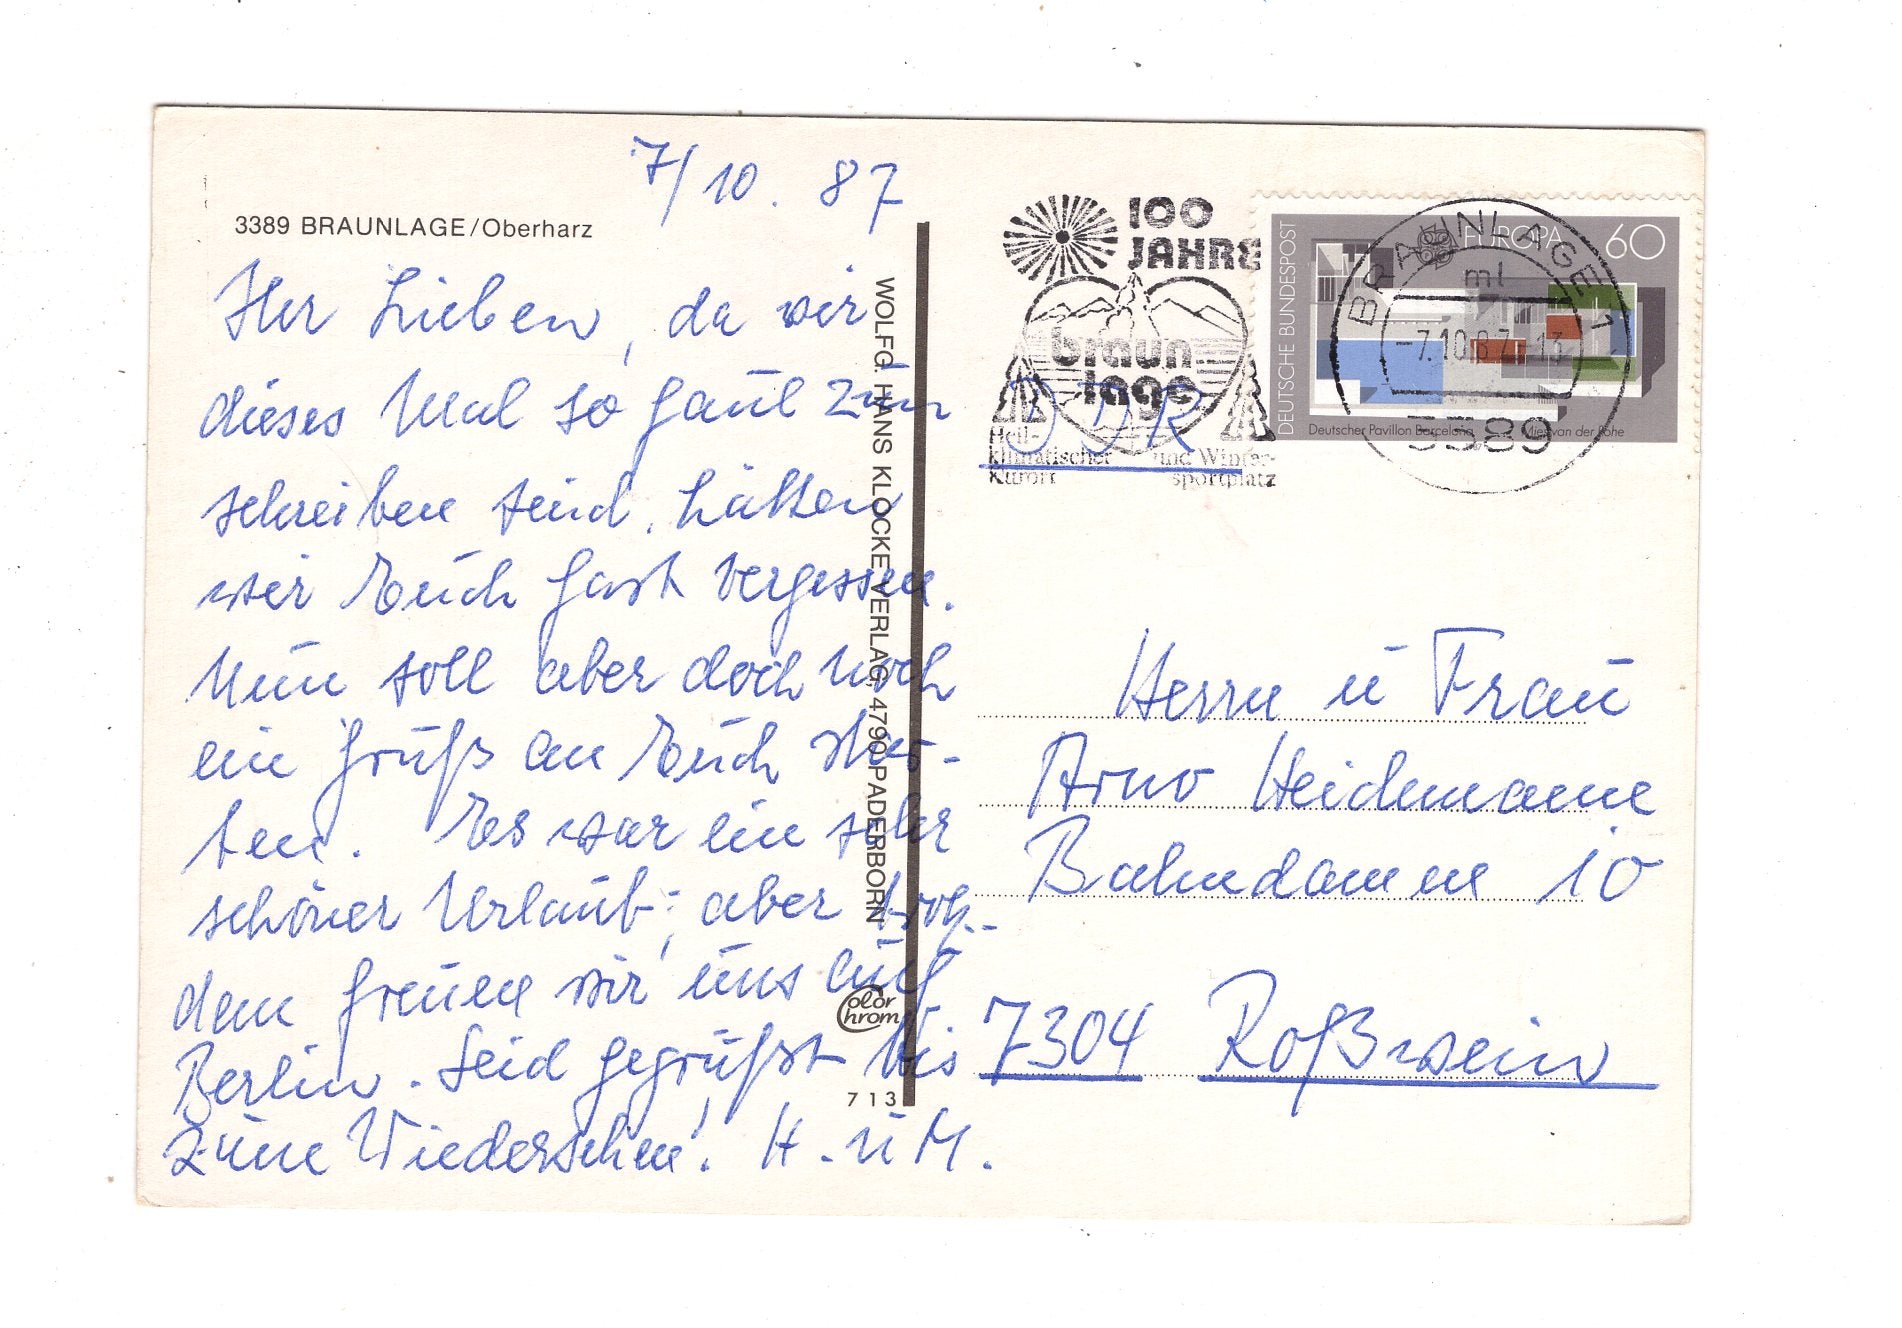 7/10. 87
3389 BRAUNLAGE/Oberharz
Ihr Lieben, da wir
dieses Mal so faul zum
schreiben sind, hätten
wir Euch fast vergessen.
Nun soll aber doch noch
ein Gruß an Euch star-
ten. Es war ein sehr
schöner Urlaub; aber trotz-
dem freuen wir uns auf
Berlin. Seid gegrüßt bis
zum Wiedersehen! H. u M.
WOLFG. HANS KLOCKE VERLAG, 4790 PADERBORN
Color
Chrom
713
100
JAHRE
braun
lage
Heil-
klimatischer und Winter-
Kurort sportplatz
DDR
DEUTSCHE BUNDESPOST
EUROPA 60
Deutscher Pavillon Barcelona Mies van der Rohe
BRAUNLAGE 1
ml
-7.10.87-13
3389
Herrn u Frau
Arno Heidemann
Bahndamm 10
7304 Roßwein